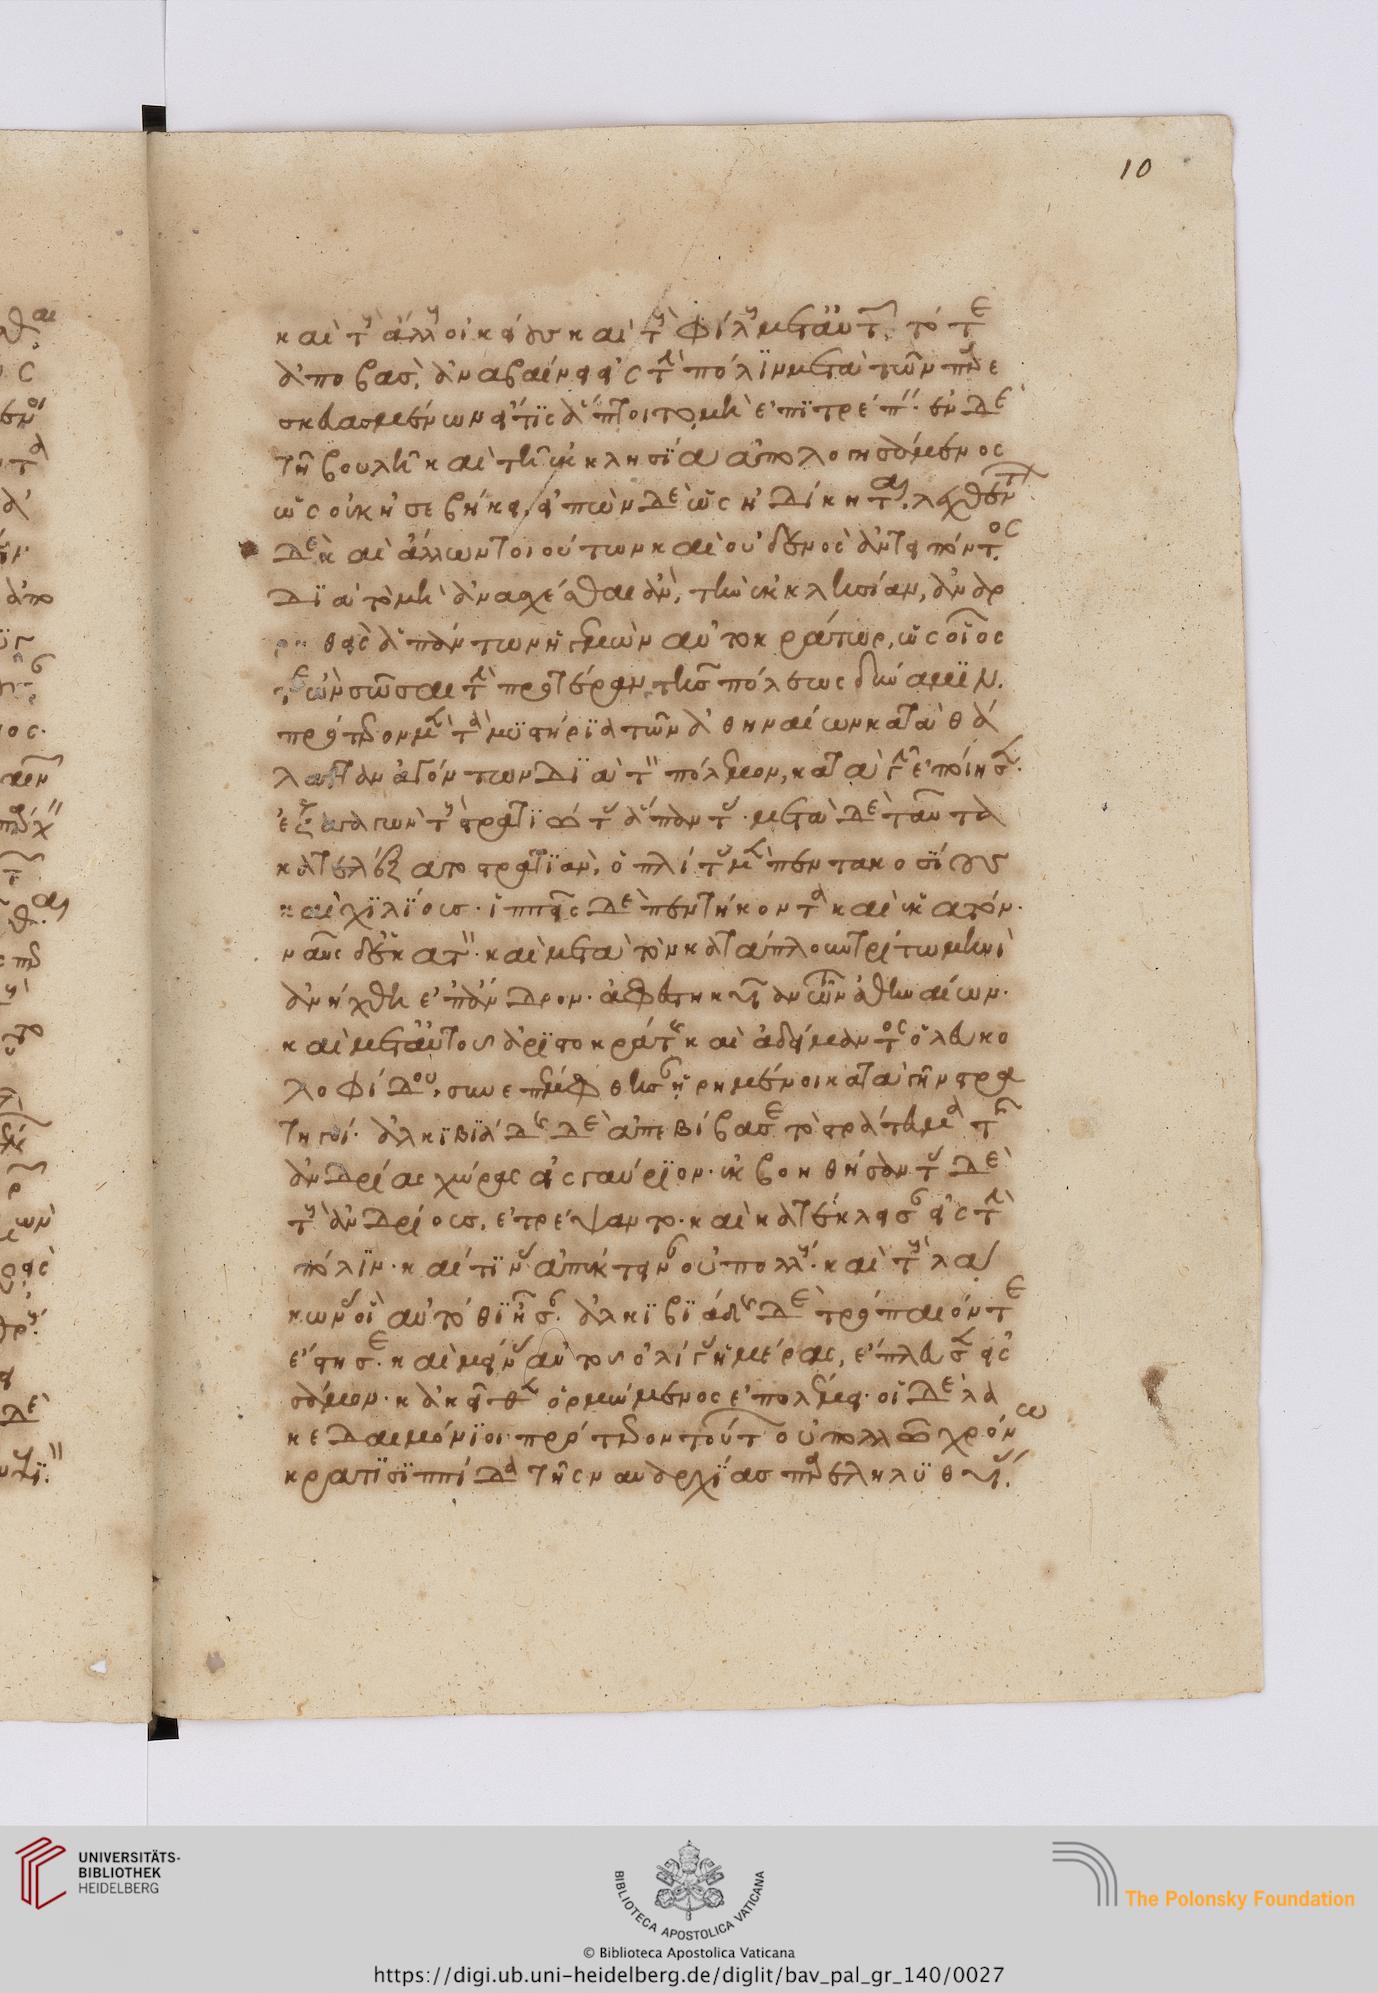 10
καὶ τοὺς ἄλλους οἰκείους καὶ τοὺς φίλους μετ' αὐτῶν, τότε
ἀποβὰς, ἀναβαίνει εἰς τὴν πόλϊν μετὰ τῶν παρε
σκευασμένων εἴ τϊς ἅπτοιτο, μὴ ἐπϊτρέπειν· ἐν δὲ
τῆ βουλῆ καὶ τῆ ἐκκλησΐα ἀπολογησάμενος
ὡς οὐκ ἠσεβήκει, εἰπὼν δὲ ὡς ἠδίκηται, λεχθέντων
δὲ καὶ ἄλλων τοιούτων καὶ οὐδενὸς ἀντειπόντος
δϊὰ τὸ μὴ ἀνασχέσθαι ἂν, τὴν ἐκκλησίαν, ἀναρ
ρηθεὶς ἁπάντων ἡγεμὼν αὐτοκράτωρ, ὡς οἷος
τε ὢν σῶσαι τὴν προτέραν, τῆς πόλεως δύναμϊν.
πρότερον μὲν τὰ μϋστήρϊα τῶν ἀθηναίων κατὰ θά
λατταν ἀγόντων δϊὰ τὸν πόλεμον, κατὰ γῆν ἐποίησεν·
ἐξαγαγὼν τοὺς στρατϊώτας ἅπαντας· μετὰ δὲ ταῦτα
κατελέξατο στρατϊὰν, ὁπλίτας μὲν πεντακοσΐους
καὶ χϊλΐους· ἱππεῖς δὲ πεντήκοντα καὶ ἑκατόν·
ναῦς δ' ἑκατόν· καὶ μετὰ τὸν κατάπλουν τρίτω μηνὶ
ἀνήχθη ἐπ' ἄνδρον· ἀφεστηκυῖαν τῶν ἀθηναίων·
καὶ μετ' αὐτοῦ ἀρϊστοκράτης καὶ ἀδείμαντος ὁ λευκο
λοφίδου, συνεπέμφθησαν ἡρημένοι κατὰ γῆν στρα
τηγοί· ἀλκϊβϊάδης δὲ ἀπεβίβασε τὸ στράτευμα τῆς
ἀνδρίας χώρας εἰς γαύρϊον· ἐκβοηθήσαντας δὲ
τοὺς ἀνδρίους, ἐτρέψαντο· καὶ κατέκλεισαν εἰς τὴν
πόλϊν· καί τϊνας ἀπέκτειναν οὐ πολλούς· καὶ τοὺς λά
κωνας οἳ αὐτόθϊ ἦσαν· ἀλκϊβϊάδης δὲ τρόπαιόν τε
ἔστησε· καὶ μείνας αὐτοῦ ὀλίγας ἡμέρας, ἔπλευσεν εἰς
σάμον· κἀκεῖθεν ὁρμώμενος ἐπολέμει· οἱ δὲ λα
κεδαιμόνϊοι πρότερον τούτων οὐ πολλῶ χρόνω
κρατϊσϊππίδα τῆς ναυαρχΐας παρεληλϋθυίας·
UNIVERSITÄTS-
BIBLIOTHEK
HEIDELBERG
BIBLIOTECA APOSTOLICA VATICANA
The Polonsky Foundation
© Biblioteca Apostolica Vaticana
https://digi.ub.uni-heidelberg.de/diglit/bav_pal_gr_140/0027